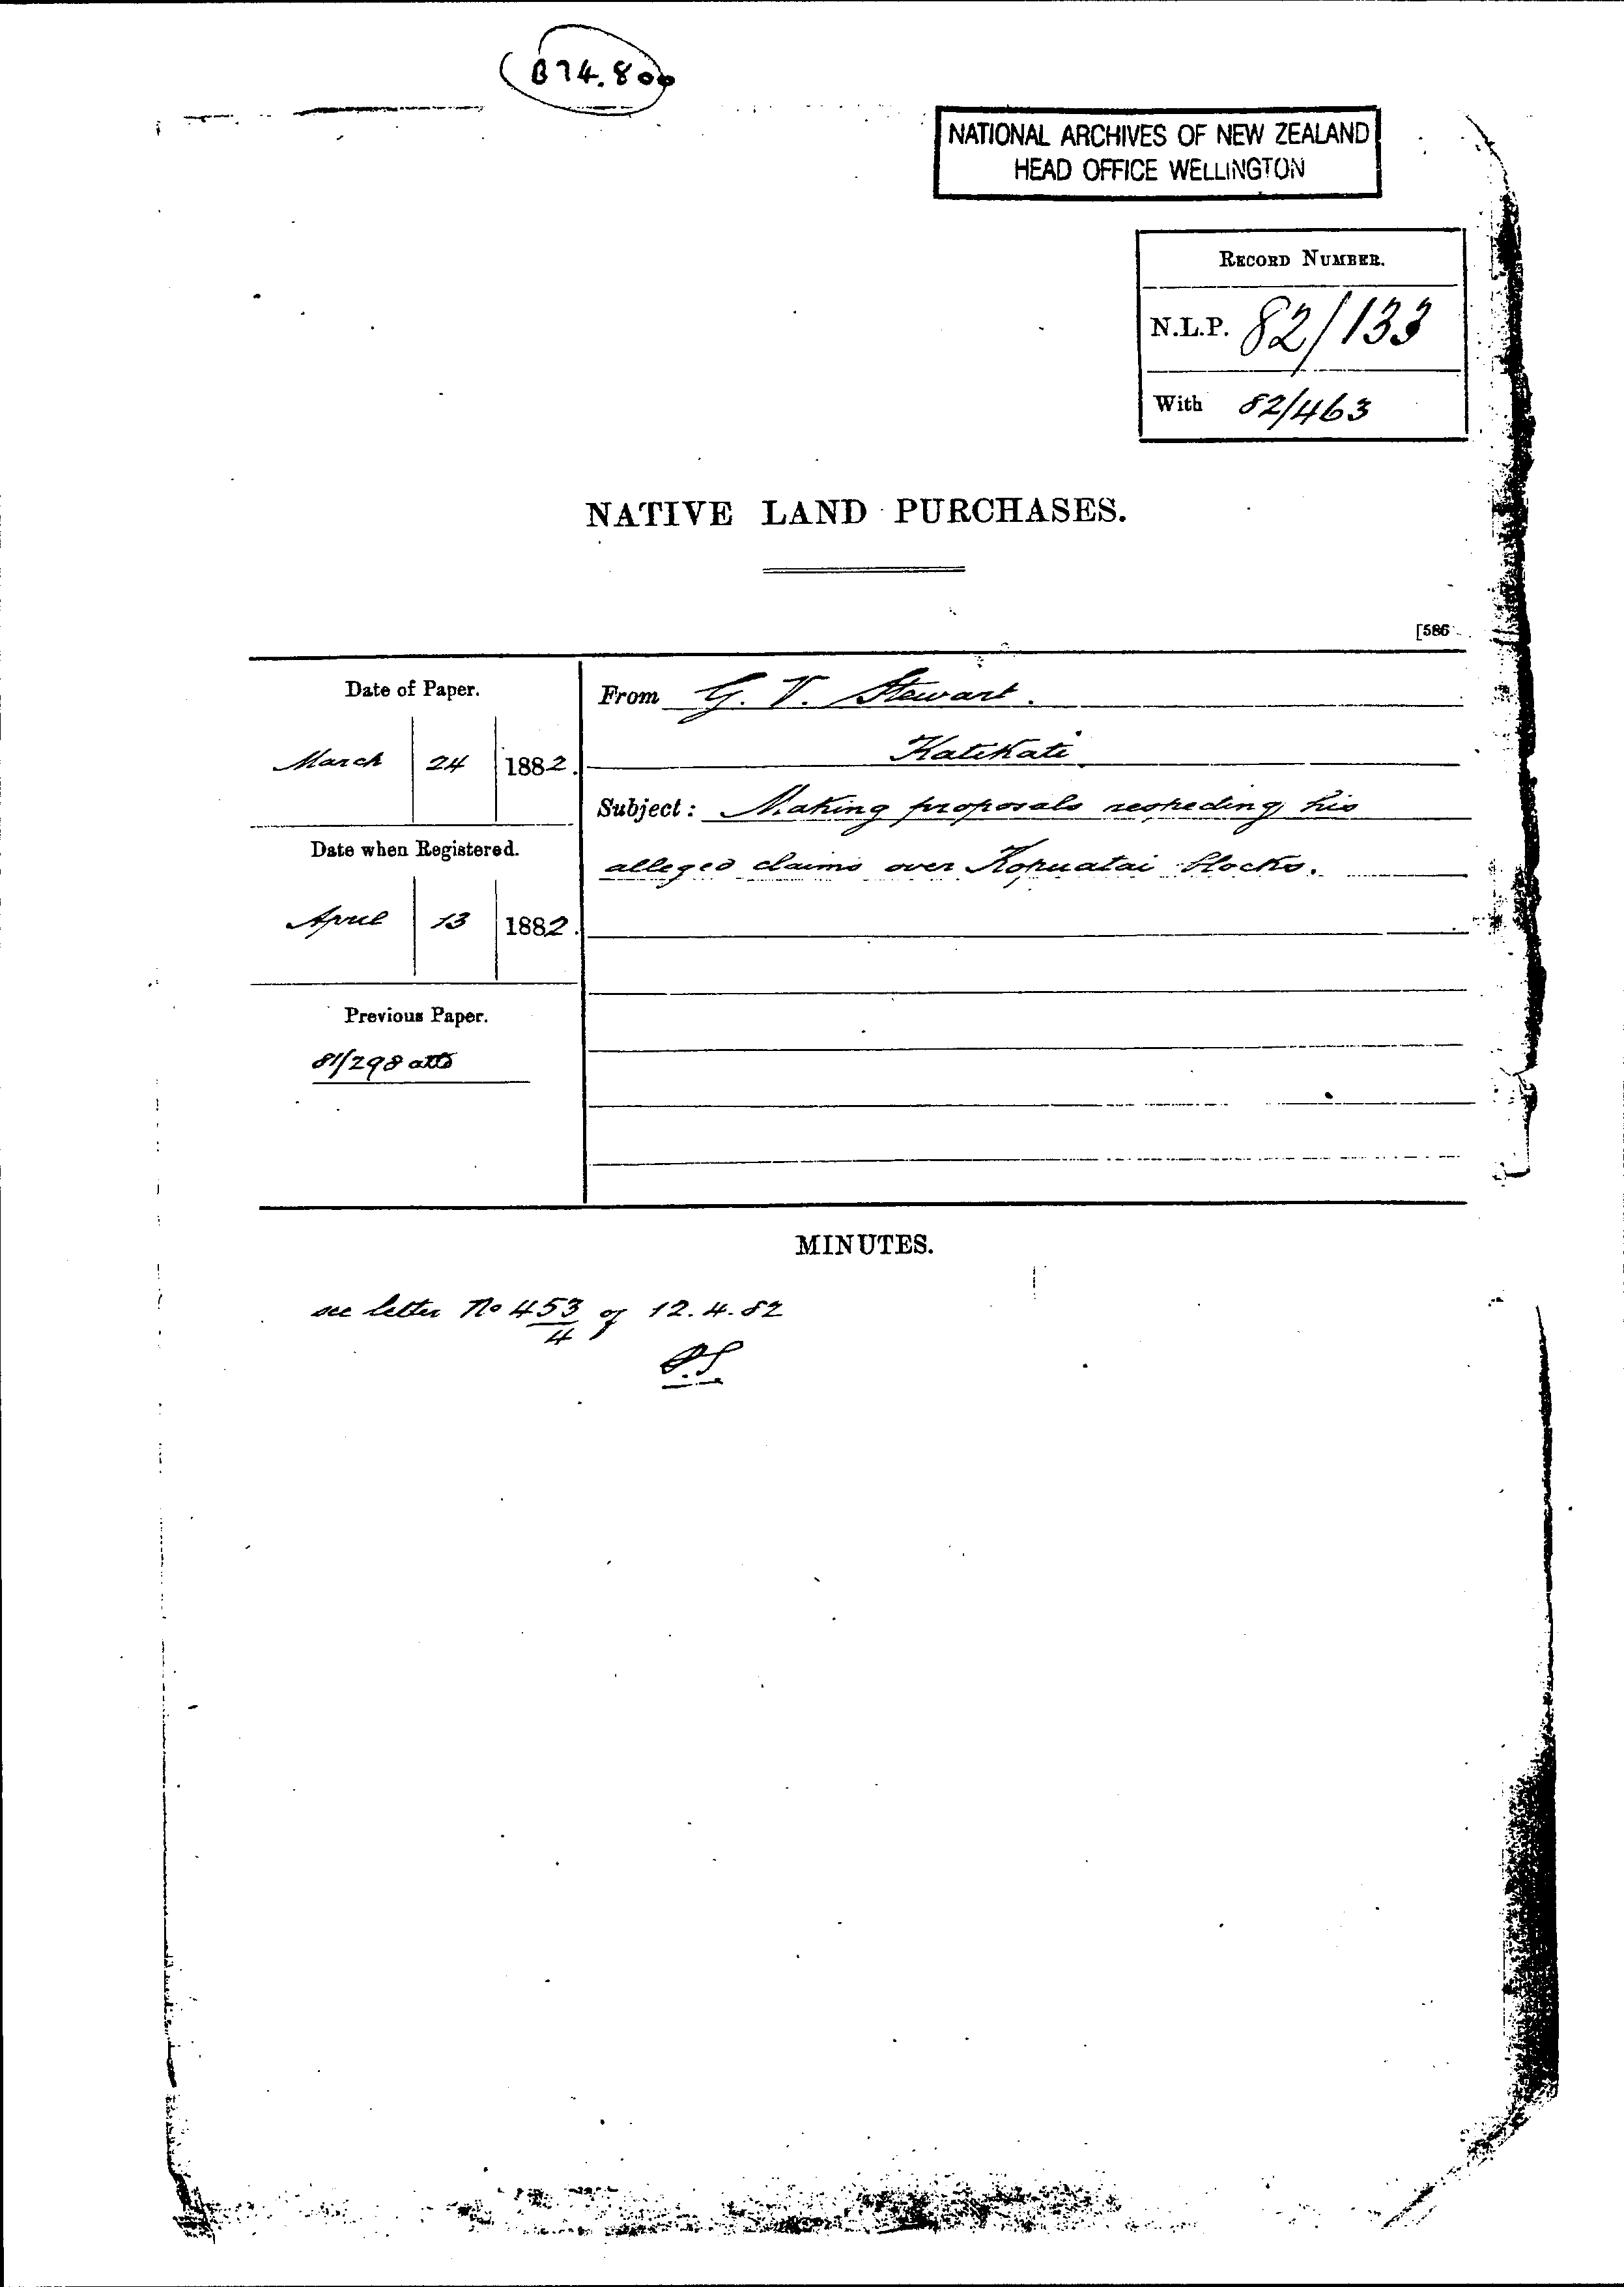 B74.800
NATIONAL ARCHIVES OF NEW ZEALAND
HEAD OFFICE WELLINGTON
RECORD NUMBER.
N.L.P. 82/133
With 82/463
NATIVE LAND PURCHASES.
[586
Date of Paper.
March 24 1882.
From G. V. Stewart.
Katikati
Subject: Making proposals respecting his
alleged claims over Kopuatai Blocks.
Date when Registered.
April 13 1882.
Previous Paper.
81/298 attd
MINUTES.
see letter No 453/4 of 12.4.82
P.S